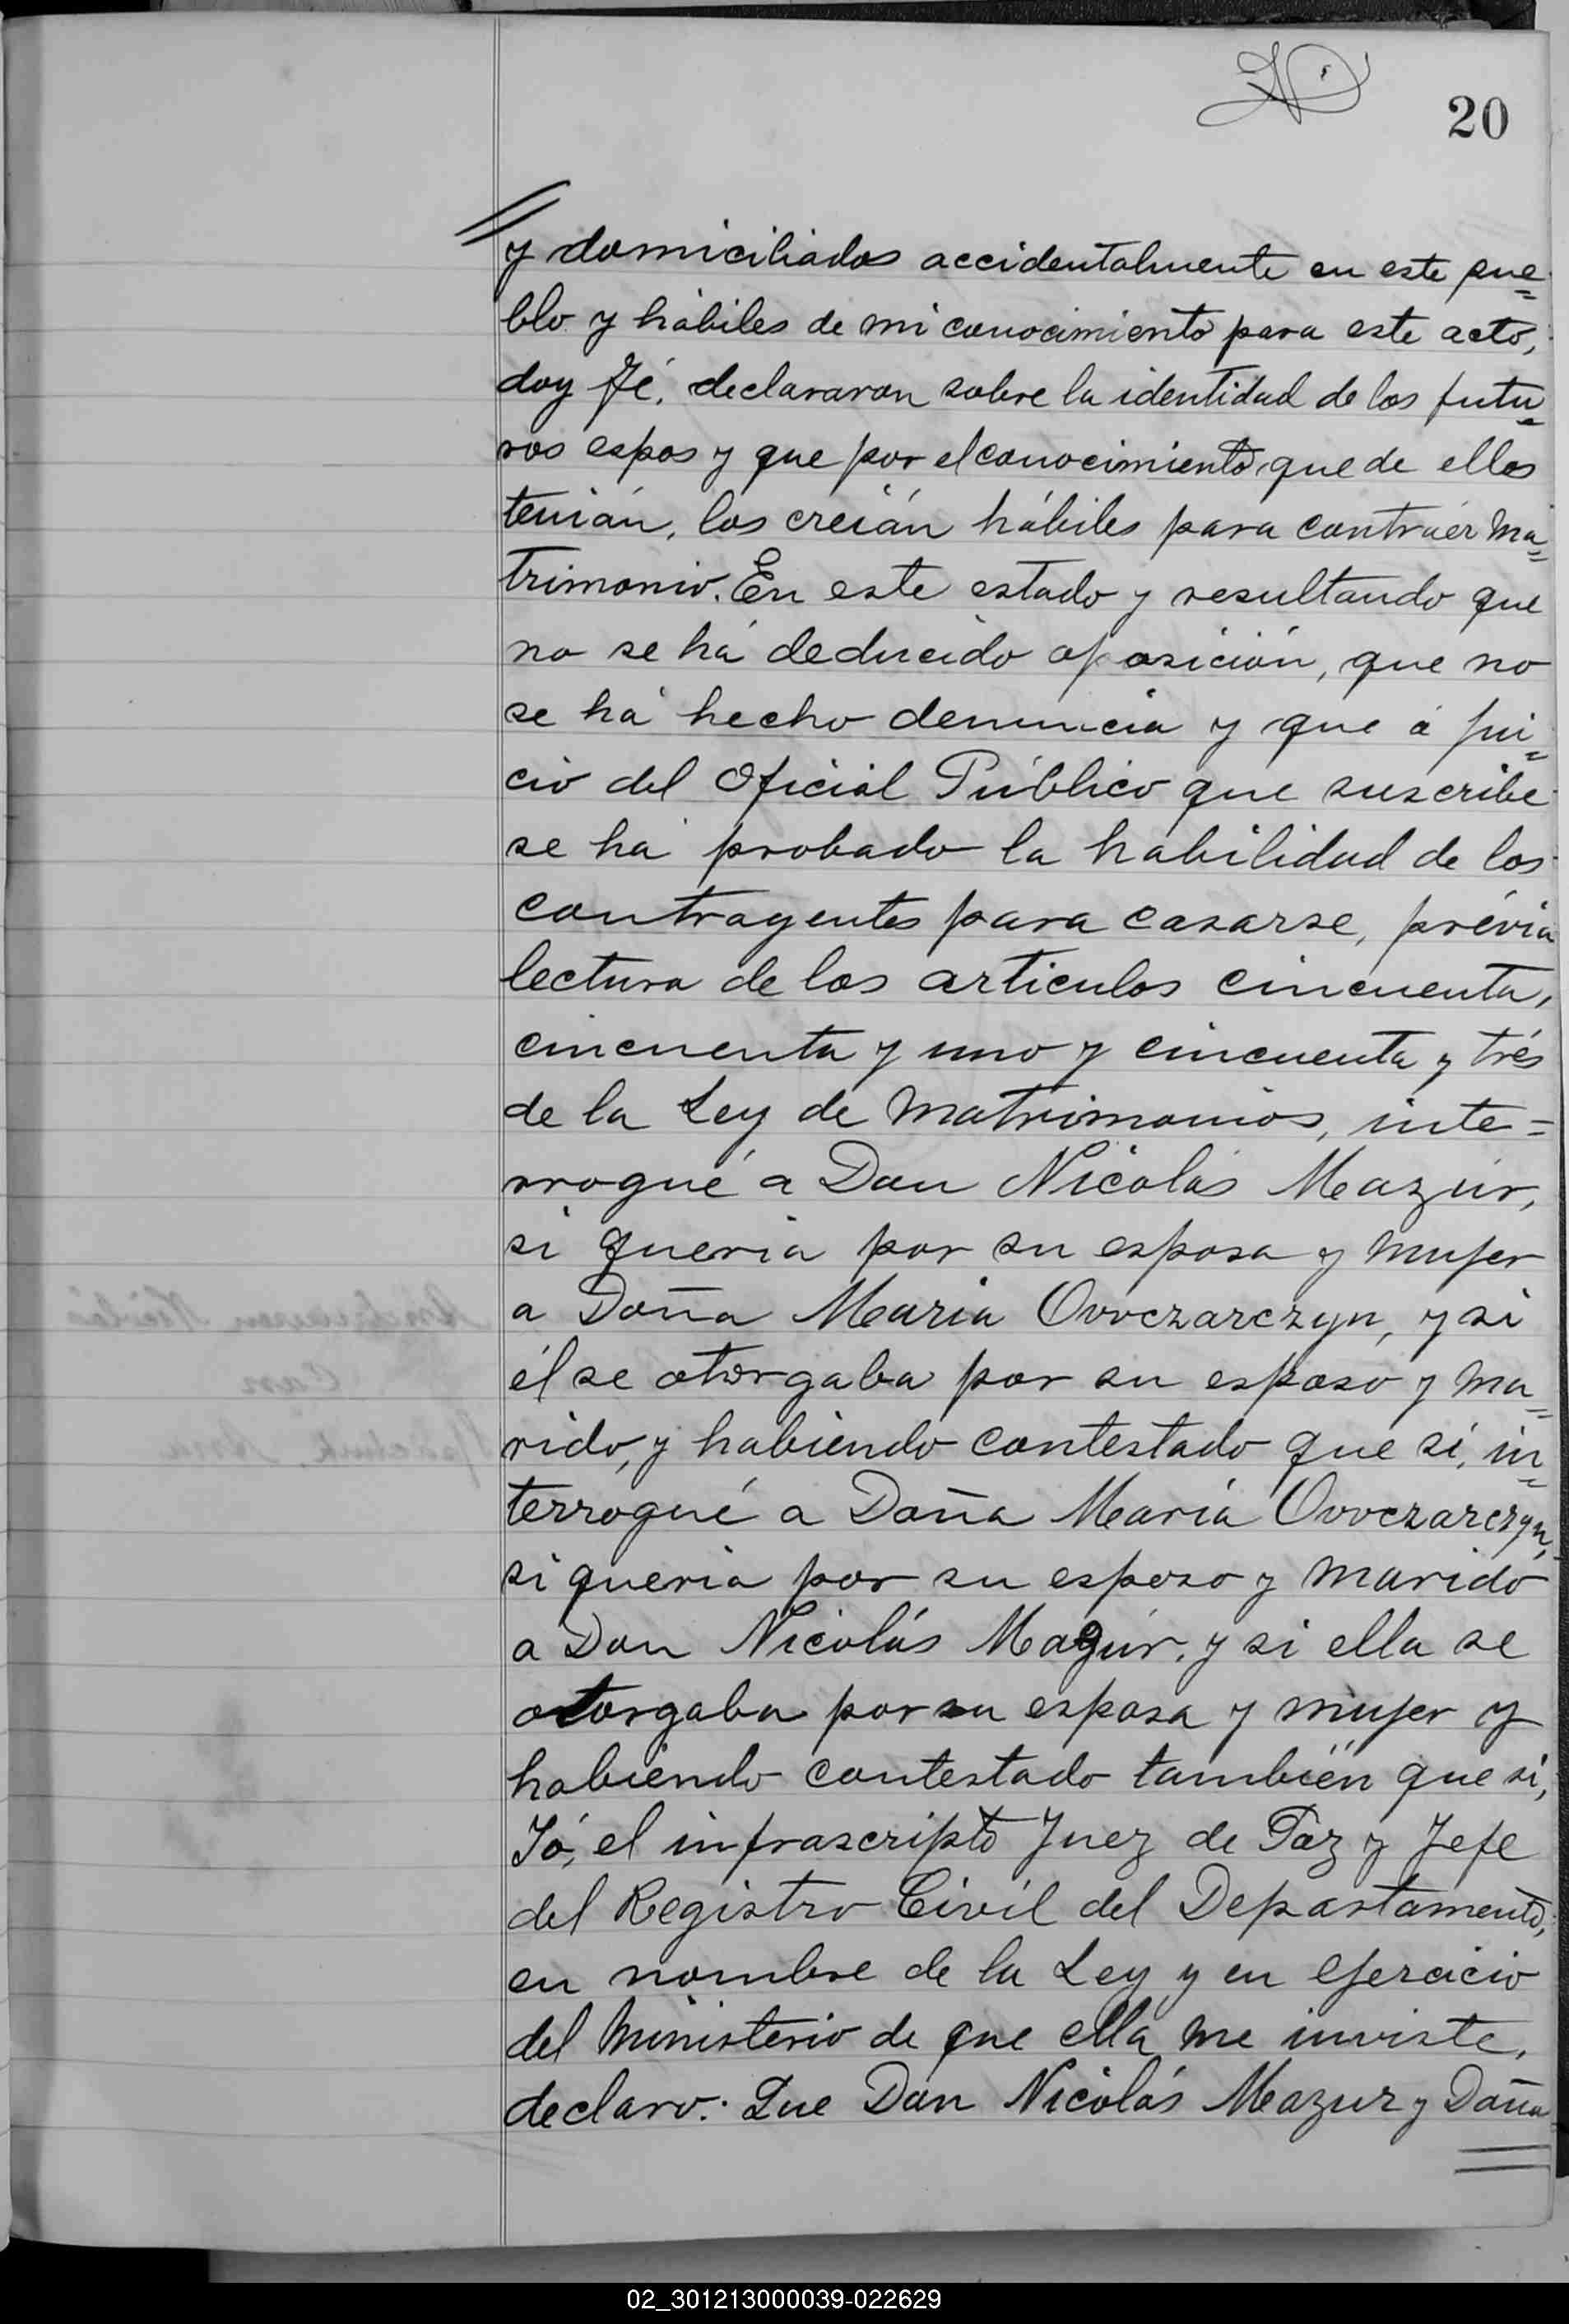 20
y domiciliados accidentalmente en este pue=
blo y hábiles de mi conocimiento para este acto,
doy fé, declararon sobre la identidad de los futu=
ros espos y que por el conocimiento que de ellos
tenián, los creián hábiles para contraér ma=
trimonio. En este estado y resultando que
no se há deducido oposición, que no
se há hecho denuncia y que á jui=
cio del Oficial Público que suscribe
se há probado la habilidad de los
contrayentes para casarse, prévia
lectura de los articulos cincuenta,
cincuenta y uno y cincuenta y trés
de la Ley de Matrimonios, inte=
rrogué a Don Nicolás Mazúr,
si queria por su esposa y mujer
a Doña Maria Owczarczyn, y si
él se otorgaba por su esposo y ma=
rido, y habiendo contestado que si, in=
terrogué a Doña Maria Owczarczyn,
si queria por su esposo y marido
a Don Nicolás Mazúr, y si ella se
otorgaba por su esposa y mujer y
habiendo contestado también que si,
Yó, el infrascripto Juez de Paz y Jefe
del Registro Civil del Departamento,
en nombre de la Ley y en ejercicio
del Ministerio de que ella me inviste,
declaro: Que Don Nicolás Mazur y Doña
02_301213000039-022629